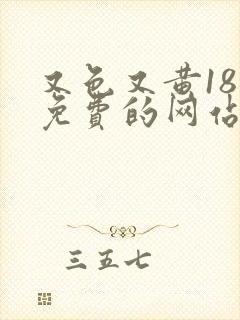 又色又黄18
免费的网站
三五七